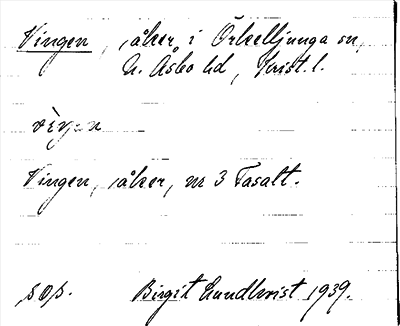 Vingen, åker i Örkelljunga sn,
N. Åsbo hd, Krist. l.
Vingen, åker, nr 3 Fasalt.
sos. Birgit Lundkvist 1939.